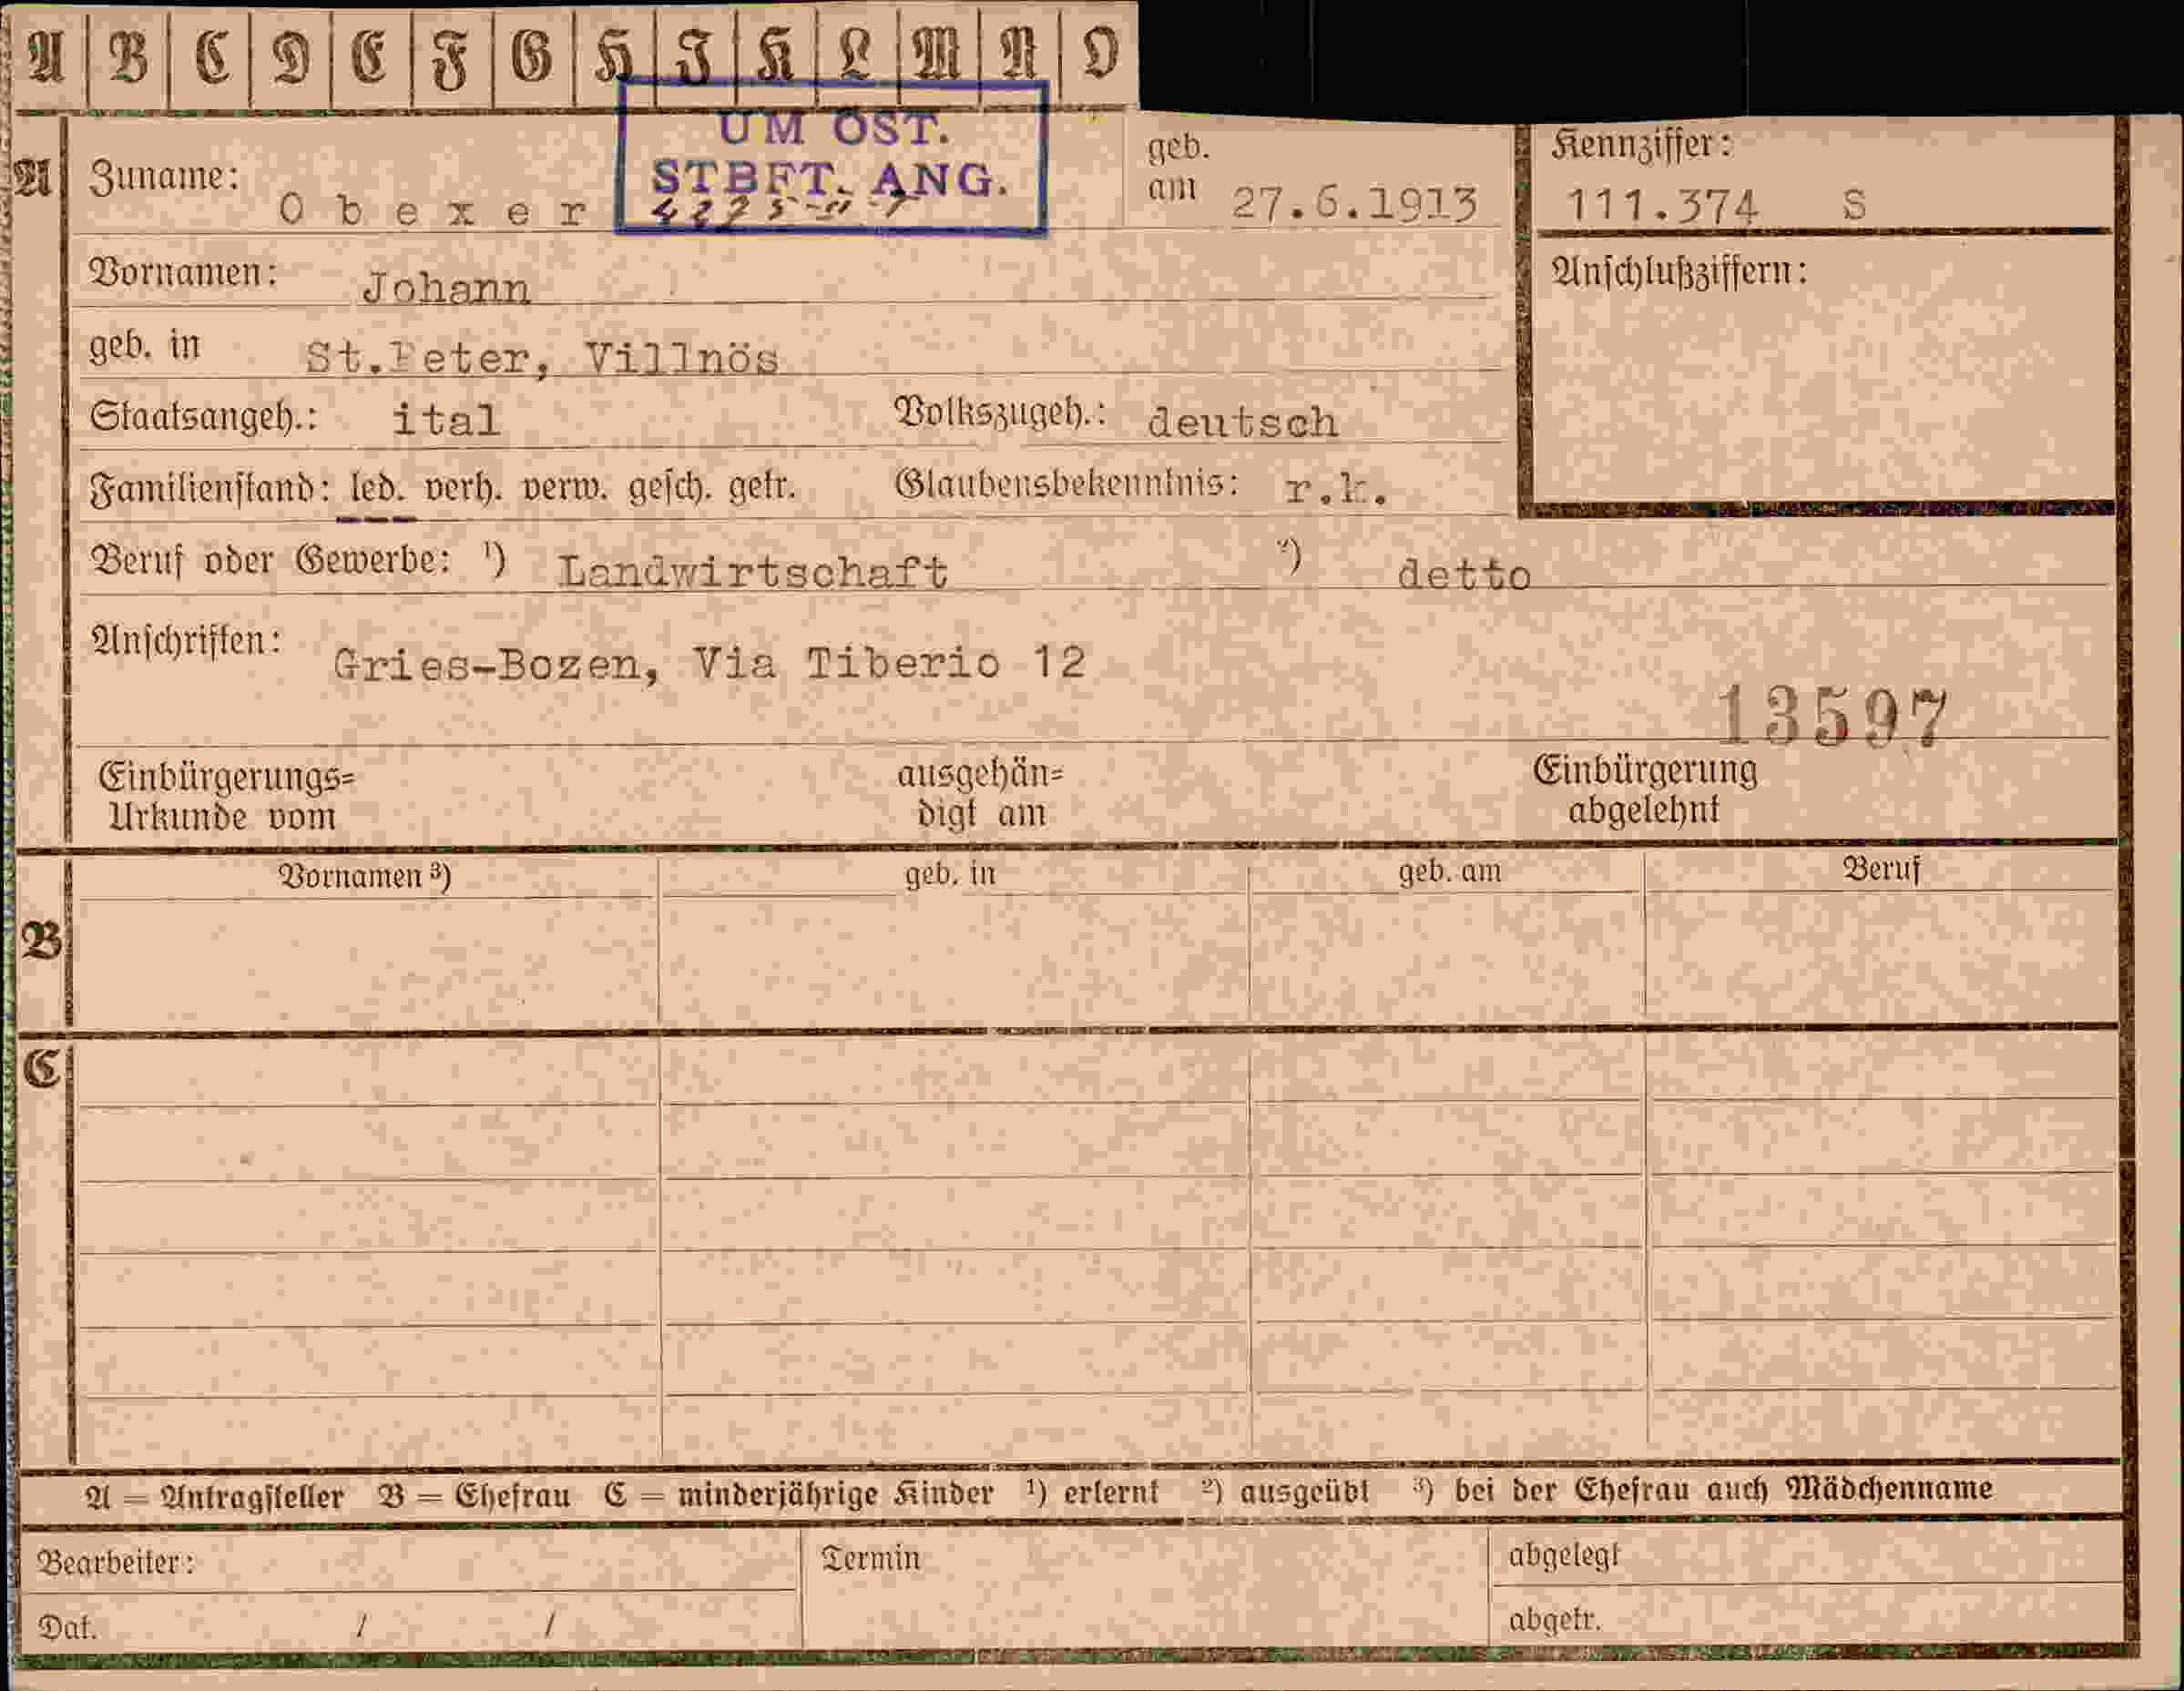 A B C D E F G H I K L M N O
UM ÖST.
STBFT. ANG.
A Zuname: Obexer geb. am 27.6.1913 Kennziffer: 111.374 S
Vornamen: Johann Anschlußziffern:
geb. in St.Peter, Villnös
Staatsangeh.: ital Volkszugeh.: deutsch
Familienstand: led. verh. verw. gesch. getr. Glaubensbekenntnis: r.k.
Beruf oder Gewerbe: ¹) Landwirtschaft ²) detto
Anschriften: Gries-Bozen, Via Tiberio 12
13597
Einbürgerungs= ausgehän= Einbürgerung
Urkunde vom digt am abgelehnt
Vornamen ³) geb. in geb. am Beruf
B
C
A = Antragsteller B = Ehefrau C = minderjährige Kinder ¹) erlernt ²) ausgeübt ³) bei der Ehefrau auch Mädchenname
Bearbeiter: Termin abgelegt
Dat. / / abgetr.